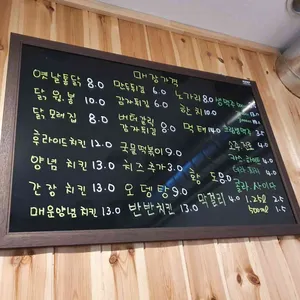 매장가격
옛날통닭 8.0
닭윙봉 10.0
닭모래집 8.0
후라이드치킨 12.0
양념 치킨 13.0
간장 치킨 13.0
매운양념치킨 13.0
만두튀김 6.0
감자튀김 6.0
버터갈릭
감자튀김 8.0
국물떡볶이 9.0
치즈 추가 3.0
오뎅탕 9.0
반반치킨 13.0
노가리 8.0
한치 10.0
먹태
황도 8.0
막걸리 4.0
생맥주
4.0
콜라 사이다
1.25l 2.5
500ml 1.5